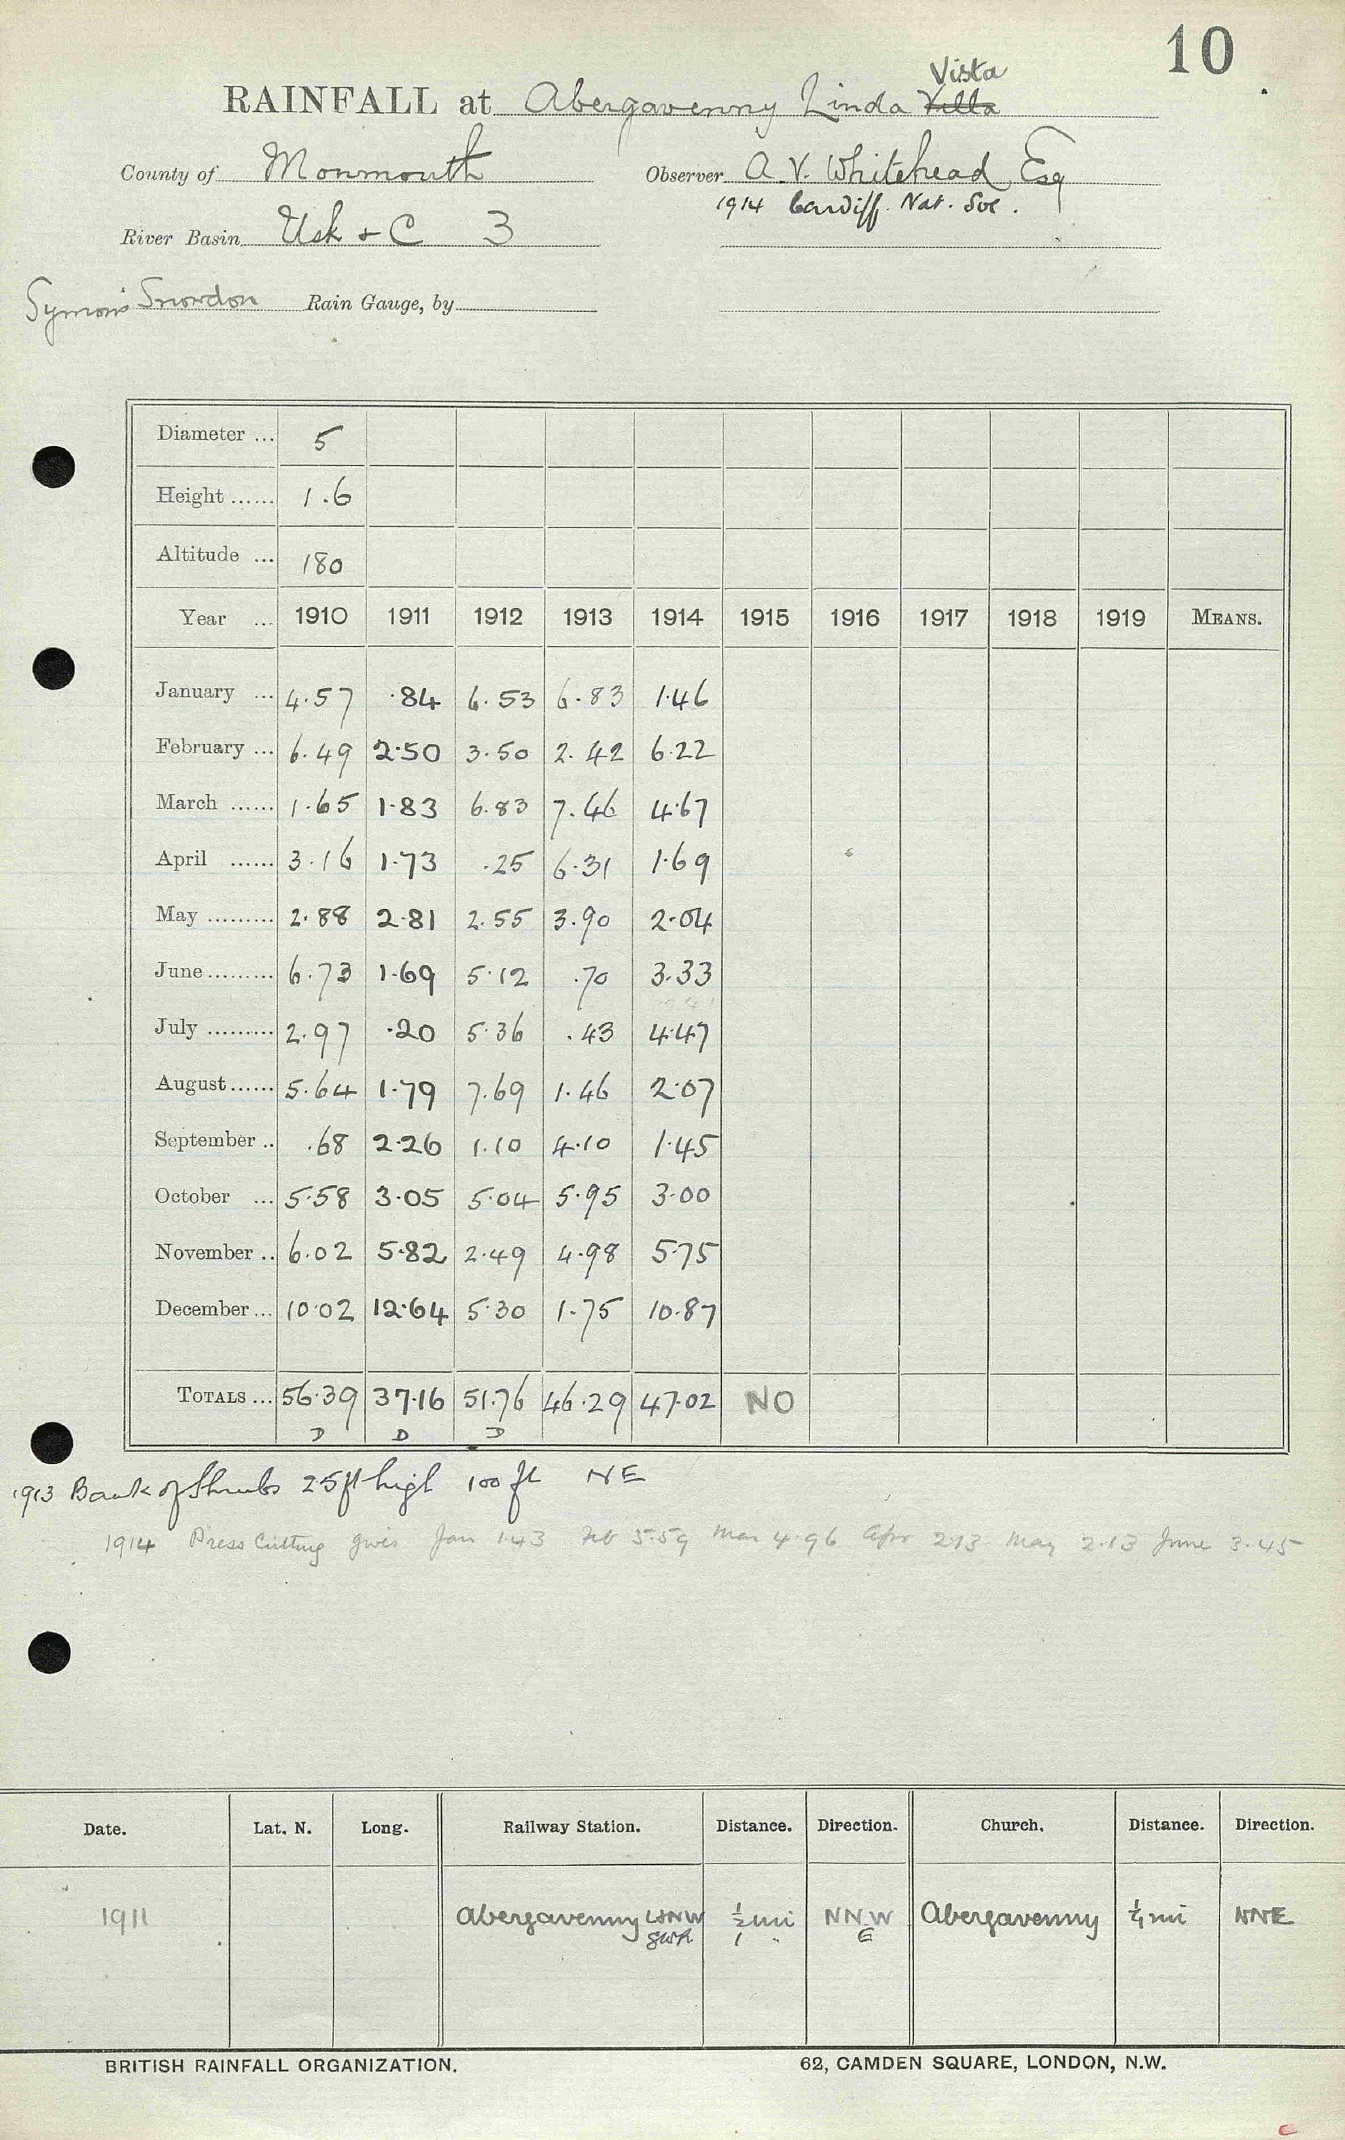 10
RAINFALL at Abergavenny Linda Villa Vista
County of Monmouth Observer A. V. Whitehead Esq
1914 Cardiff. Nat. Soc.
River Basin Usk & C 3
Symons Snowdon Rain Gauge, by
Diameter ... 5
Height ...... 1.6
Altitude ... 180
Year ... 1910 1911 1912 1913 1914 1915 1916 1917 1918 1919 MEANS.
January ... 4.57 .84 6.53 6.83 1.46
February ... 6.49 2.50 3.50 2.42 6.22
March ...... 1.65 1.83 6.83 7.46 4.67
April ...... 3.16 1.73 .25 6.31 1.69
May ......... 2.88 2.81 2.55 3.90 2.04
June ......... 6.73 1.69 5.12 .70 3.33
July ......... 2.97 .20 5.36 .43 4.47
August ...... 5.64 1.79 7.69 1.46 2.07
September .. .68 2.26 1.10 4.10 1.45
October ... 5.58 3.05 5.04 5.95 3.00
November .. 6.02 5.82 2.49 4.98 5.75
December ... 10.02 12.64 5.30 1.75 10.87
TOTALS ... 56.39 37.16 51.76 46.29 47.02 NO
D D D
1913 Bank of Shrubs 25ft high 100 ft NE
1914 Press Cutting gives Jan 1.43 Feb 5.59 Mar 4.96 Apr 2.13 May 2.13 June 3.45
Date. Lat. N. Long. Railway Station. Distance. Direction. Church. Distance. Direction.
1911 Abergavenny L&NW ½ mi NNW Abergavenny ¼ mi NNE
GWR 1 " E
BRITISH RAINFALL ORGANIZATION. 62, CAMDEN SQUARE, LONDON, N.W.